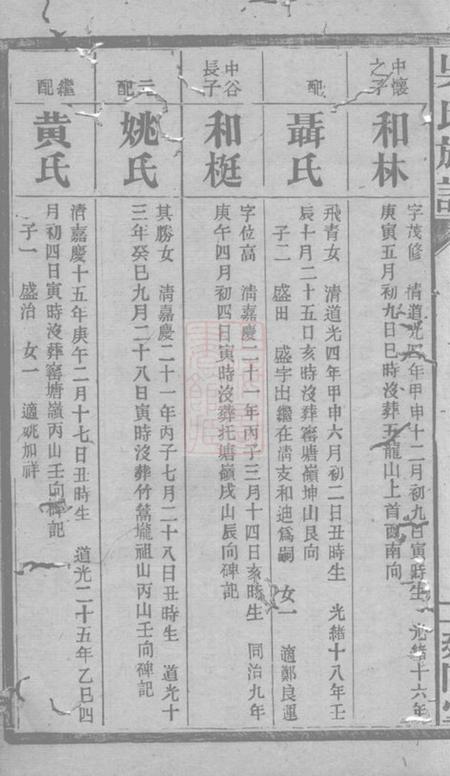 吳氏族譜
中懷之子
和林
字茂修 清道光四年甲申十二月初九日寅時生 光緒十六年
庚寅五月初九日巳時沒葬五龍山上首酉南向
配
聶氏
飛青女 清道光四年甲申六月初二日丑時生 光緒十八年壬
辰十月二十五日亥時沒葬窰塘嶺坤山艮向
子二 盛田 盛宇出繼在清支和迪爲嗣 女一 適鄭良運
中谷長子
和梃
字位高 清嘉慶二十一年丙子三月十四日亥時生 同治九年
庚午四月初四日寅時沒葬托塘嶺戌山辰向碑記
元配
姚氏
其勝女 清嘉慶二十一年丙子七月二十八日丑時生 道光十
三年癸巳九月二十八日寅時沒葬竹蒿壠祖山丙山壬向碑記
繼配
黃氏
清嘉慶十五年庚午二月十七日丑時生 道光二十五年乙巳四
月初四日寅時沒葬窰塘嶺丙山壬向碑記
子一 盛治 女一 適姚加祥